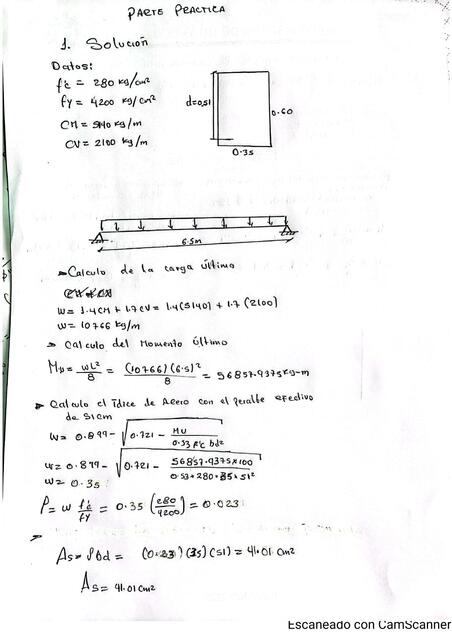 PARTE PRACTICA
1. Solución
Datos:
f'c = 280 kg/cm²
fy = 4200 kg/cm²
CM = 5140 kg/m
CV = 2100 kg/m
d=0,51
0.60
0.35
6.5m
Calculo de la carga último
W = 1.4CM + 1.7CV = 1.4(5140) + 1.7(2100)
W = 10766 kg/m
Calculo del Momento último
Mu = WL²/8 = (10766)(6.5)²/8 = 56857.9375 kg-m
Calculo el ídice de Acero con el peralte efectivo
de 51cm
w = 0.849 - √(0.721 - MU/(0.53 f'c bd²))
w = 0.849 - √(0.721 - 56857.9375x100/(0.53*280*35*51²))
w = 0.35
ρ = w f'c/fy = 0.35 (280/4200) = 0.023
As = ρbd = (0.23)(35)(51) = 41.01 cm²
As = 41.01 cm²
Escaneado con CamScanner